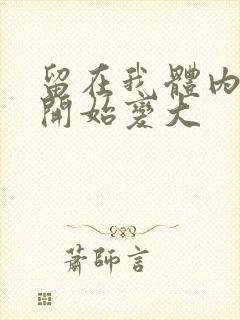 留在我體内
開始變大
蕭師言